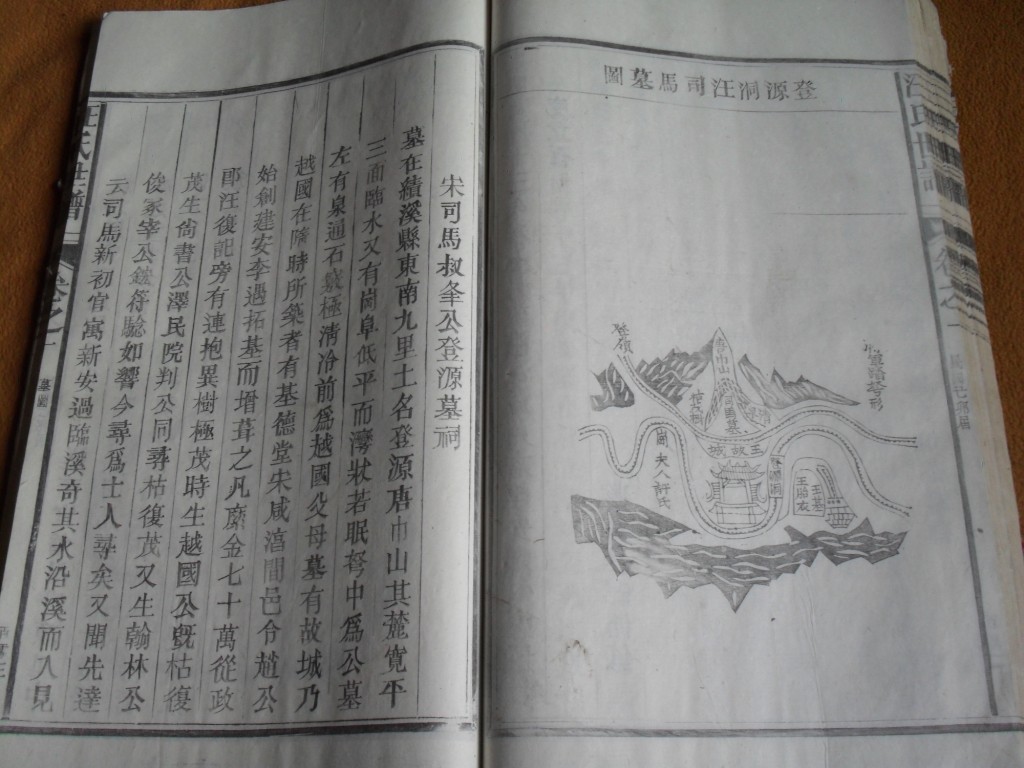 登源洞汪司馬墓圖
唐巾山
司馬墓
王故城
國夫人許氏
登源洞
王墓
宋司馬叔峯公登源墓祠
墓在績溪縣東南九里土名登源唐巾山其麓寬平
三面臨水又有岡阜低平而灣狀若眠弩中爲公墓
左有泉通石竅極清冷前爲越國公父母墓有故城乃
越國在隋時所築者有基德堂宋咸淳間邑令趙公
始創建安李遇拓基而增葺之凡糜金七十萬從政
郎汪復記旁有連抱異樹極茂時生越國公旣枯復
茂生尙書公澤民院判公同尋枯復茂又生翰林公
俊冢宰公鋐符驗如響今尋爲士人尋矣又聞先達
云司馬新初官寓新安過臨溪奇其水沿溪而入見
汪氏世譜
卷之一
墓圖